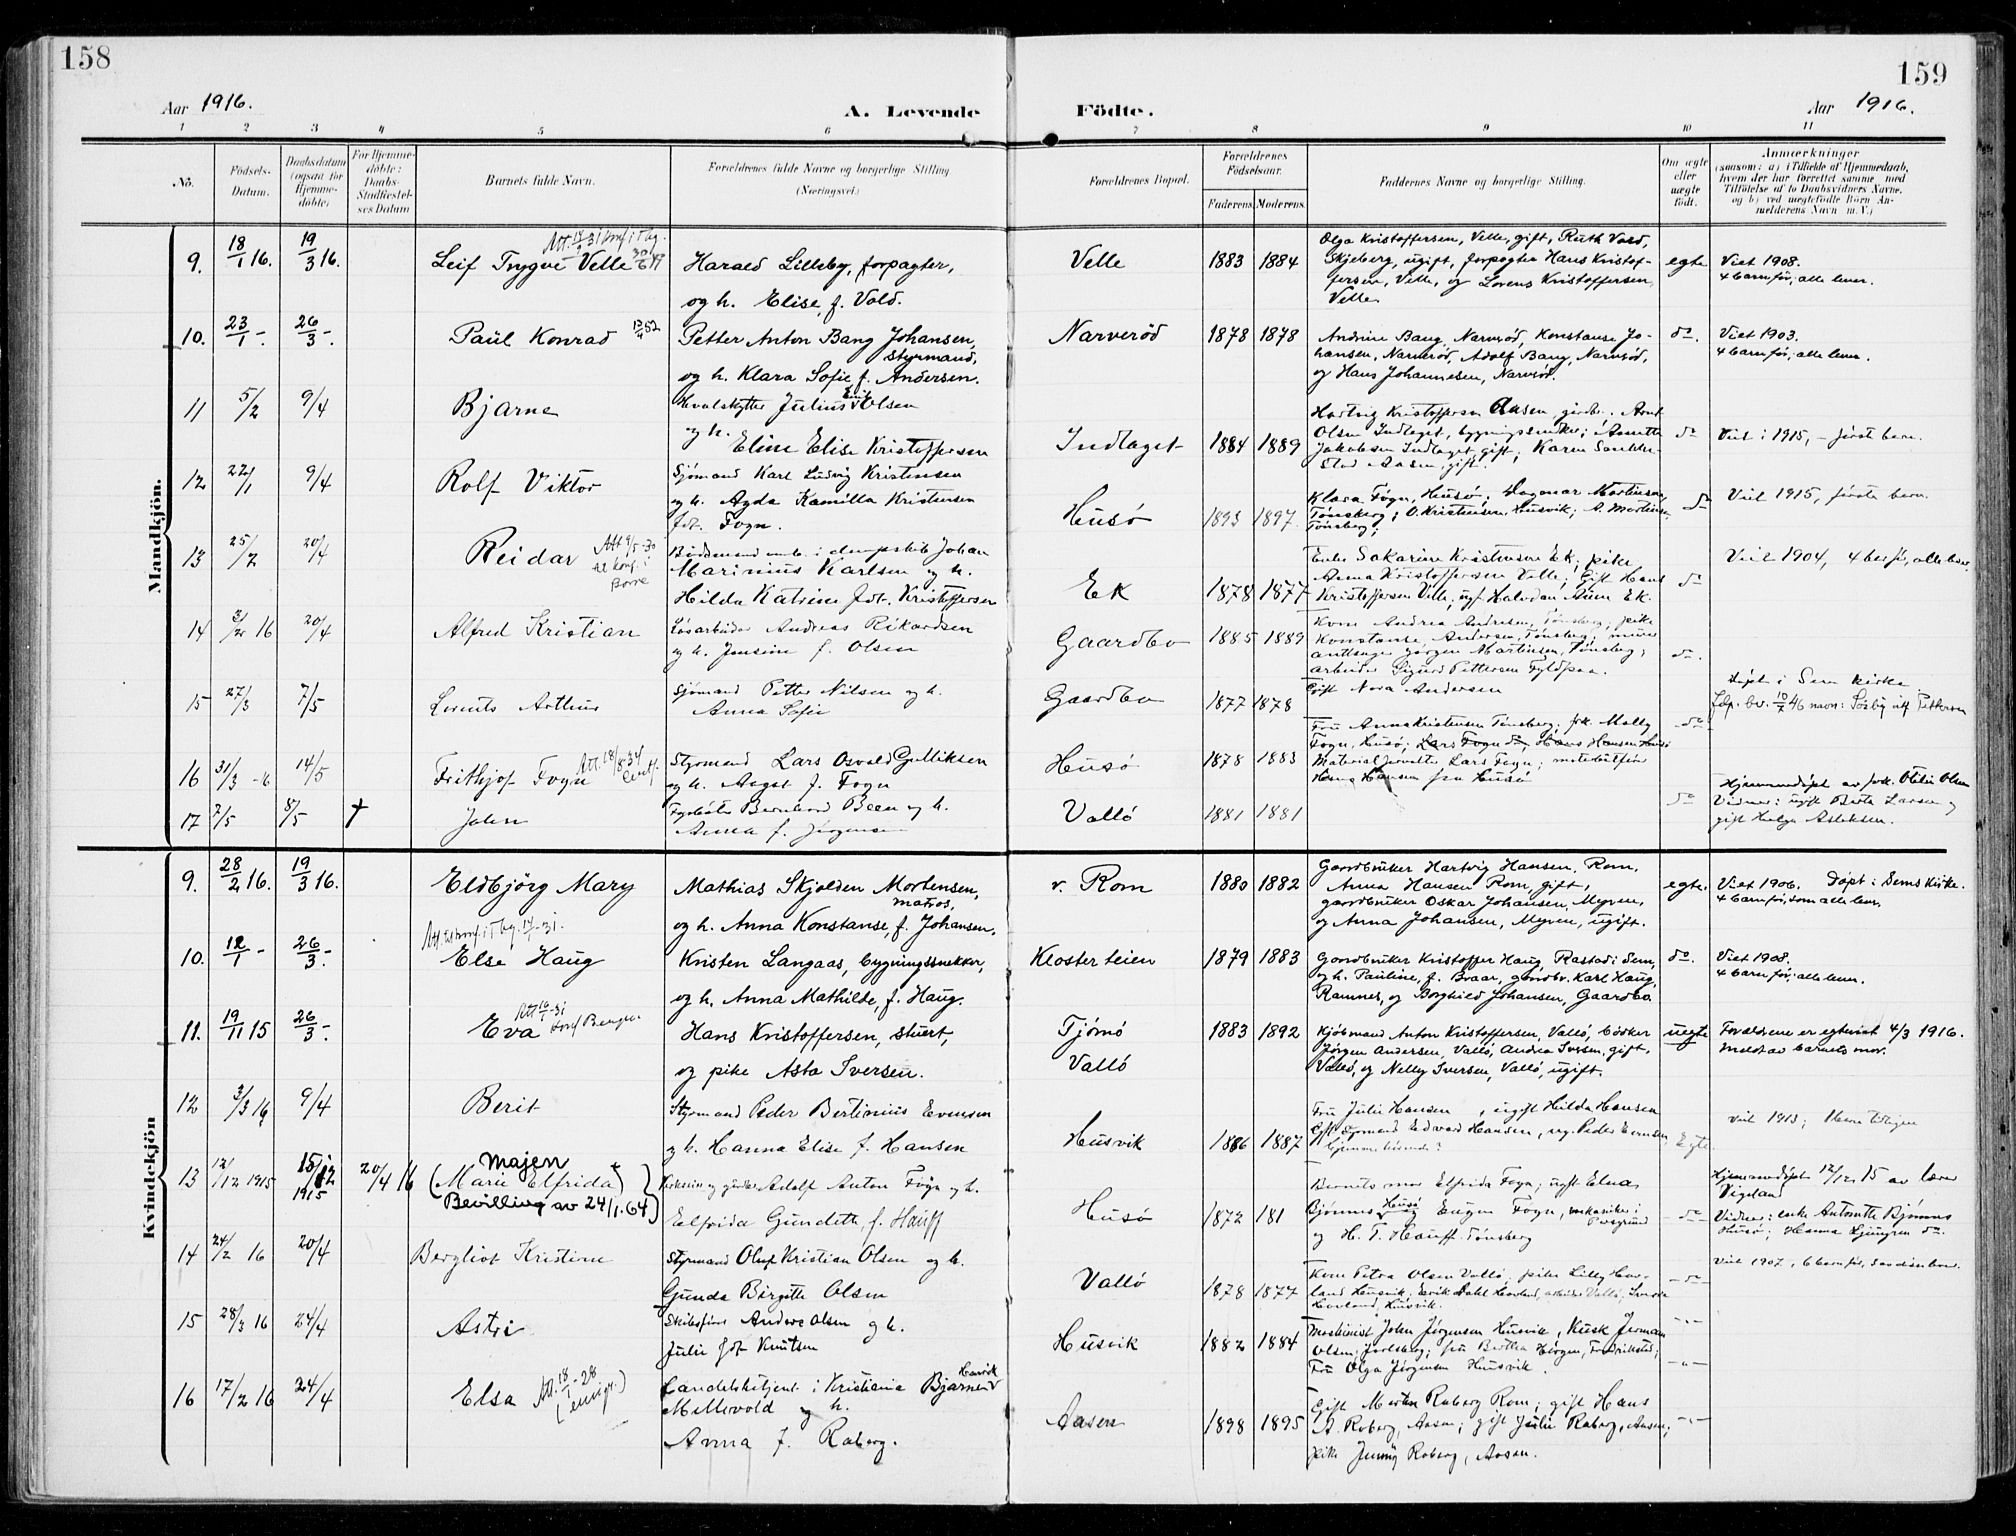 158
159
Aar 1916.
A. Levende Födte.
Aar 1916.
1 2 3 4 5 6 7 8 9 10 11
No.
Födsels-Datum.
Daabsdatum (ogsaa for Hjemme-döbte)
For Hjemme-döbte: Daabs-Stadfæstel-ses Datum
Barnets fulde Navn.
Forældrenes fulde Navne og borgerlige Stilling (Næringsvei.)
Forældrenes Bopæl.
Forældrenes Födselsaar.
Faderens. Moderens.
Faddernes Navne og borgerlige Stilling.
Om ægte eller uægte födt.
Anmærkninger
(saasom: a) i Tilfælde af Hjemmedaab,
hvem der har forrettet samme med
Tilföielse af to Daabsvidners Navne,
og b) ved uægtefödte Börn An-
melderens Navn m. V.)
Mandkjön.
9. 18/1 16. 19/3 16. Leif Trygve Velle
Harald Lilleby, forpagter,
og h. Elise, f. Vold.
Velle 1883 1884
Olga Kristoffersen, Velle, gift, Ruth Vold,
Skjeberg, ugift, forpagter Hans Kristof-
fersen, Velle, og Lorens Kristoffersen,
Velle.
egte Viet 1908.
4 barn før, alle lever.
10. 23/1 - 26/3 - Paul Konrad
Petter Anton Bang Johansen,
styrmand,
og h. Klara Sofie f. Andersen.
Narverød 1878 1878
Andrine Bang, Narverød, Konstanse Jo-
hansen, Narverød, Adolf Bang, Narverød,
og Hans Johannesen, Narverød.
do. Viet 1903.
4 barn før, alle lever.
11 5/2 9/4 Bjarne
Hvalskytter Julius Emil Olsen
og h. Eline Elise Kristoffersen
Indlaget 1884 1889
Hartvig Kristoffersen Aasen, gårdbr. Arnt
Olsen Indlaget, bygningssnekker; Anette
Jakobsen Indlaget, gift; Karen
Aasen, gift.
do Viet i 1915, - første barn.
12 27/1 9/4 Rolf Viktor
Sjömand Karl Ludvig Kristensen
og h. Agda Kamilla Kristensen
født Fogn.
Husö 1893 1897
Klara Fögn, Husö; Dagmar Martinsen,
Tönsberg; O. Kristensen Husvik; A. Martinsen
Tönsberg;
do Viet 1915, første barn.
13 25/2 20/4 Reidar Att 9/5-30 til konf. i Borre
Johan
Marinius Karlsen og h.
Hilda Katrine født Kristoffersen
Ek 1878 1877
Enke Sakarine Kristensen Ek; pike
Anna Kristoffersen Velle; Gift Hans
Kristoffersen Velle; ugf. Halvdan Ek.
do Viet 1904, 4 før, alle lever
14 3/2 16 20/4 Alfred Kristian
Løsarbeider Andreas Rikardsen
og h. Jensine f. Olsen
Gaardbo 1885 1889
Kone Andrea Andersen, Tönsberg, pike
Konstanse Andersen, Tönsberg; murer
Jørgen Martinsen, Tönsberg;
arbeider Sigurd Pettersen Fyldpaa.
do.
15 27/3 7/5 Lorents Arthur
Sjömand Petter Nilsen og h.
Anna Sofie
Gaardbo 1877 1878
Gift Nora Andersen
do
Døpt i Sem kirke
16 31/3 -6 14/5 Frithjof Fogn Att. 18/8 34
Styrmand Lars Osvald Gulliksen
og h. Aagot f. Fogn
Husö 1878 1883
Fru Anna Kristensen Tönsberg; frk. Molly
Fogn, Husö; Lars Fogn do, Hans Hansen Husö
Materialforvalter Lars Fogn;
Hansen fra Husö
17 2/5 8/5 † John
Fyrbøter Bernhard Been og h.
Anna f. Jørgensen
Vallö 1881 1881
do
Hjemmedøpt av frk. Otelie Olsen
Vidner: ugift Berta Larsen og
gift Helga Asleksen.
Kvindekjön
9. 28/2 16. 19/3 16. Eldbjörg Mary
Mathias Skjolden Mortensen,
matros,
og h. Anna Konstanse, f. Johansen.
v. Rom 1880 1882
Gaardbruker Hartvig Hansen, Rom,
Anna Hansen Rom, gift,
gaardbruker Oskar Johansen, Myren,
og Anna Johansen, Myren, ugift.
egte. Viet 1906. Döpt i Sems kirke.
4 barn før, som alle lever.
10. 12/1 - 26/3 - Else Haug
Kristen Langaas, bygningssnekker,
og h. Anna Mathilde, f. Haug.
Klosterteien 1879 1883
Gaardbruker Kristoffer Haug, Rastad i Sem,
og h. Pauline, f. Braar, gårdbr. Karl Haug,
Ramnes, og Borghild Johansen, Gaardbo.
do. Viet 1908.
4 barn før, alle lever.
11. 19/11 15 26/3 - Eva
Hans Kristoffersen, stuert,
og pike Asta Iversen.
Tjömö
Vallö
1883 1892
Kjöbmand Anton Kristoffersen, Vallö, bödker
Jörgen Andersen, Vallö, Andrea Iversen, gift,
Vallö, og Nelly Iversen, Vallö, ugift.
uegte Forældrene er egteviet 4/3 1916.
Meldt av barnets mor.
12 3/3 16 9/4 Berit
Styrmand Peder Bertinius Evensen
og h. Hanna Elise f. Hansen
Husvik 1886 1887
Fru Julie Hansen, ugift Hilda Hansen
Gift Styrmand Edvard Hansen, ug. Peder Evensen
Egte
Viet 1913;
13 12/12 1915 15/12 1915 20/4 16
Majen
(Marie Elfrida)
Bevilling av 24/1.64
Adolf Anton Fögn og h.
Elfrida Gundette, f. Hauff
Husö 1872 181
Barnets mor Elfrida Fogn; ugift Elna
Bjönnes Husö og Eugen Fogn, mekaniker i Porsgrund
og H. T. Hauff Tönsberg
do
Hjemmedöpt 12/12 15 av lærer
Vigeland
Vidner: enke Antonette Bjönnes
Husö; Hanna Ljungren do.
14 24/2 16 20/4 Bergliot Kristine
Styrmand Oluf Kristian Olsen og h.
Gunda Birgitte Olsen
Vallö 1878 1877
Kone Petra Olsen Vallö; pike Lilly Hov-
land Husvik; Erik Dahl Hovland, arbeider Vallö;
Hovland, Husvik.
do
Viet 1907, 6 barn før,
15 28/3 16 24/4 Astri
Skibsfører Anders Olsen og h.
Julie født Knutsen
Husvik 1882 1884
Maskinist John Jörgensen Husvik, Kusk Herman
Olsen; Jarlsberg; fru Bertha Hörgen, Fredrikstad;
Fru Olga Jørgensen Husvik.
-"-
16 17/2 16 24/4 Elsa Att. 18/1-28
Handelsbetjent i Kristiania Bjarne Henrik
Mellevold og h.
Anna f. Roberg.
Aasen 1898 1895
Gift Marthe Roberg Rom; gift Hans
A. Roberg, Aasen; gift Julie Roberg, Aasen;
pike Jenny Roberg, Aasen.
-"-